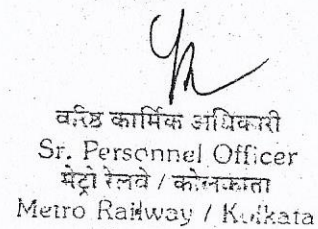 वरिष्ठ कार्मिक अधिकारी
Sr. Personnel Officer
मेट्रो रेलवे / कोलकाता
Metro Railway / Kolkata